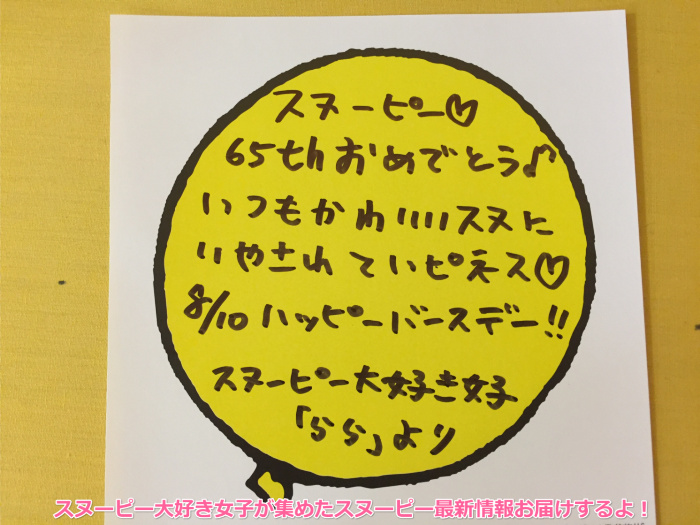 スヌーピー♡
65thおめでとう♪
いつもかわいいスヌに
いやされていピネス♡
8/10 ハッピーバースデー!!
スヌーピー大好き女子
「らら」より
スヌーピー大好き女子が集めたスヌーピー最新情報お届けするよ！